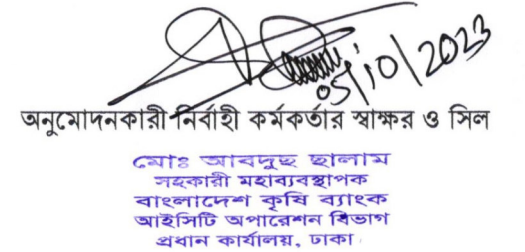 05/10/2023
অনুমোদনকারী নির্বাহী কর্মকর্তার স্বাক্ষর ও সিল
মোঃ আবদুছ ছালাম
সহকারী মহাব্যবস্থাপক
বাংলাদেশ কৃষি ব্যাংক
আইসিটি অপারেশন বিভাগ
প্রধান কার্যালয়, ঢাকা।